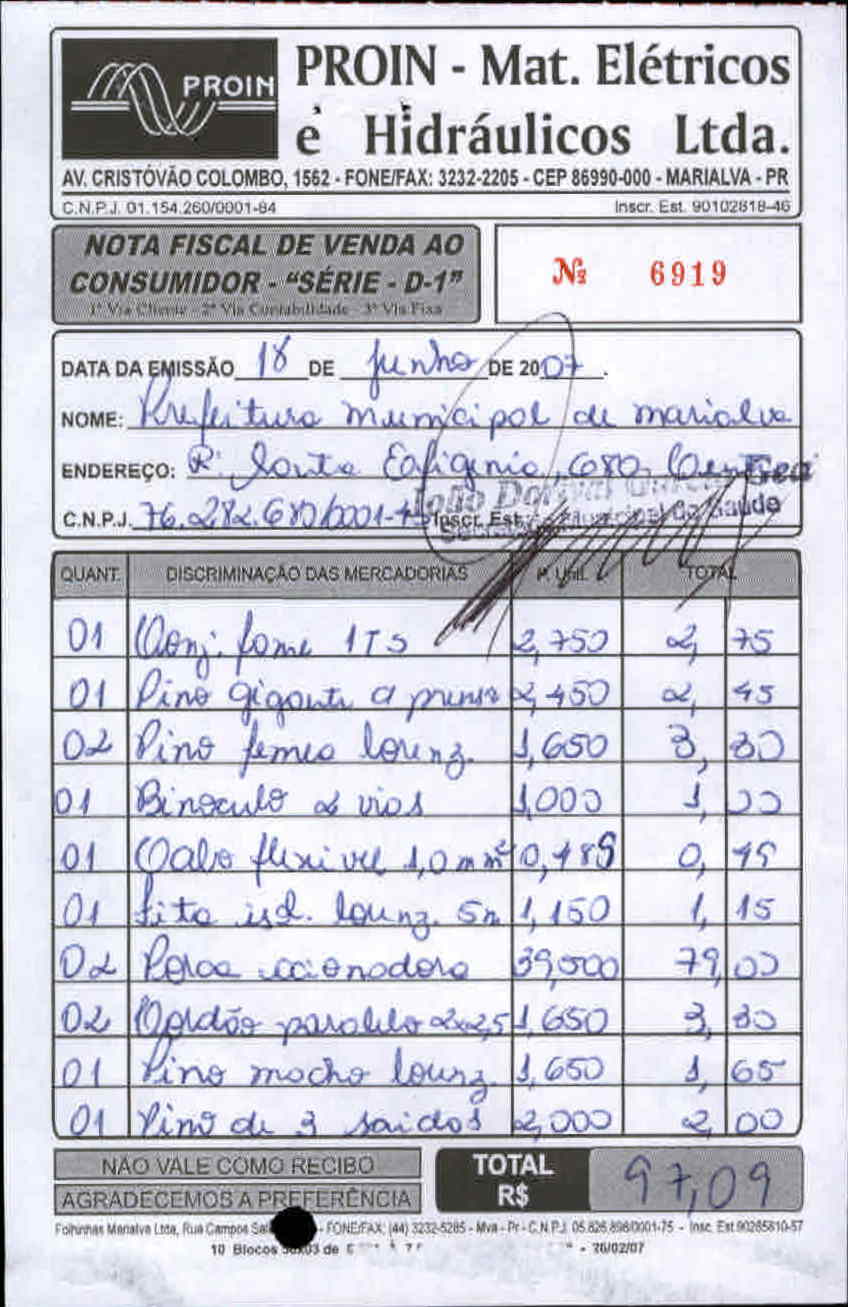 PROIN
PROIN - Mat. Elétricos
e Hidráulicos Ltda.
AV. CRISTÓVÃO COLOMBO, 1562 - FONE/FAX: 3232-2205 - CEP 86990-000 - MARIALVA - PR
C.N.P.J. 01.154.260/0001-84 Inscr. Est. 90102818-46
NOTA FISCAL DE VENDA AO
CONSUMIDOR - "SÉRIE - D-1"
1ª Via Cliente - 2ª Via Contabilidade - 3ª Via Fixa
Nº 6919
DATA DA EMISSÃO 18 DE Junho DE 2007.
NOME: Prefeitura municipal de marialva
ENDEREÇO: R. Santa Efigenia, 680
C.N.P.J. 76.282.680/0001-45 Inscr. Est.
Municipal da Saúde
QUANT. DISCRIMINAÇÃO DAS MERCADORIAS P. Unit. TOTAL
01 Conj. fome 1TS 2,750 2,75
01 Pino gigante 2,450 2,45
02 Pino femea lorenz. 1,650 3,30
01 Binoculo 2 vias 1,000 1,00
01 Cabo flexivel 1,0 mm² 0,489 0,49
01 fita isol. lorenz. 5m 1,150 1,15
02 acionadora 39,500 79,00
02 Cordão paralelo 2x2,5 1,650 3,30
01 Pino macho lorenz. 1,650 1,65
01 Pino de 3 saidas 2,000 2,00
NÃO VALE COMO RECIBO
AGRADECEMOS A PREFERÊNCIA
TOTAL R$ 97,09
Folhinhas Marialva Ltda, Rua Campos - FONE/FAX: (44) 3232-5285 - Mva - Pr - C.N.P.J. 05.826.898/0001-75 - Insc. Est.90285810-57
10 Blocos de - 26/02/07